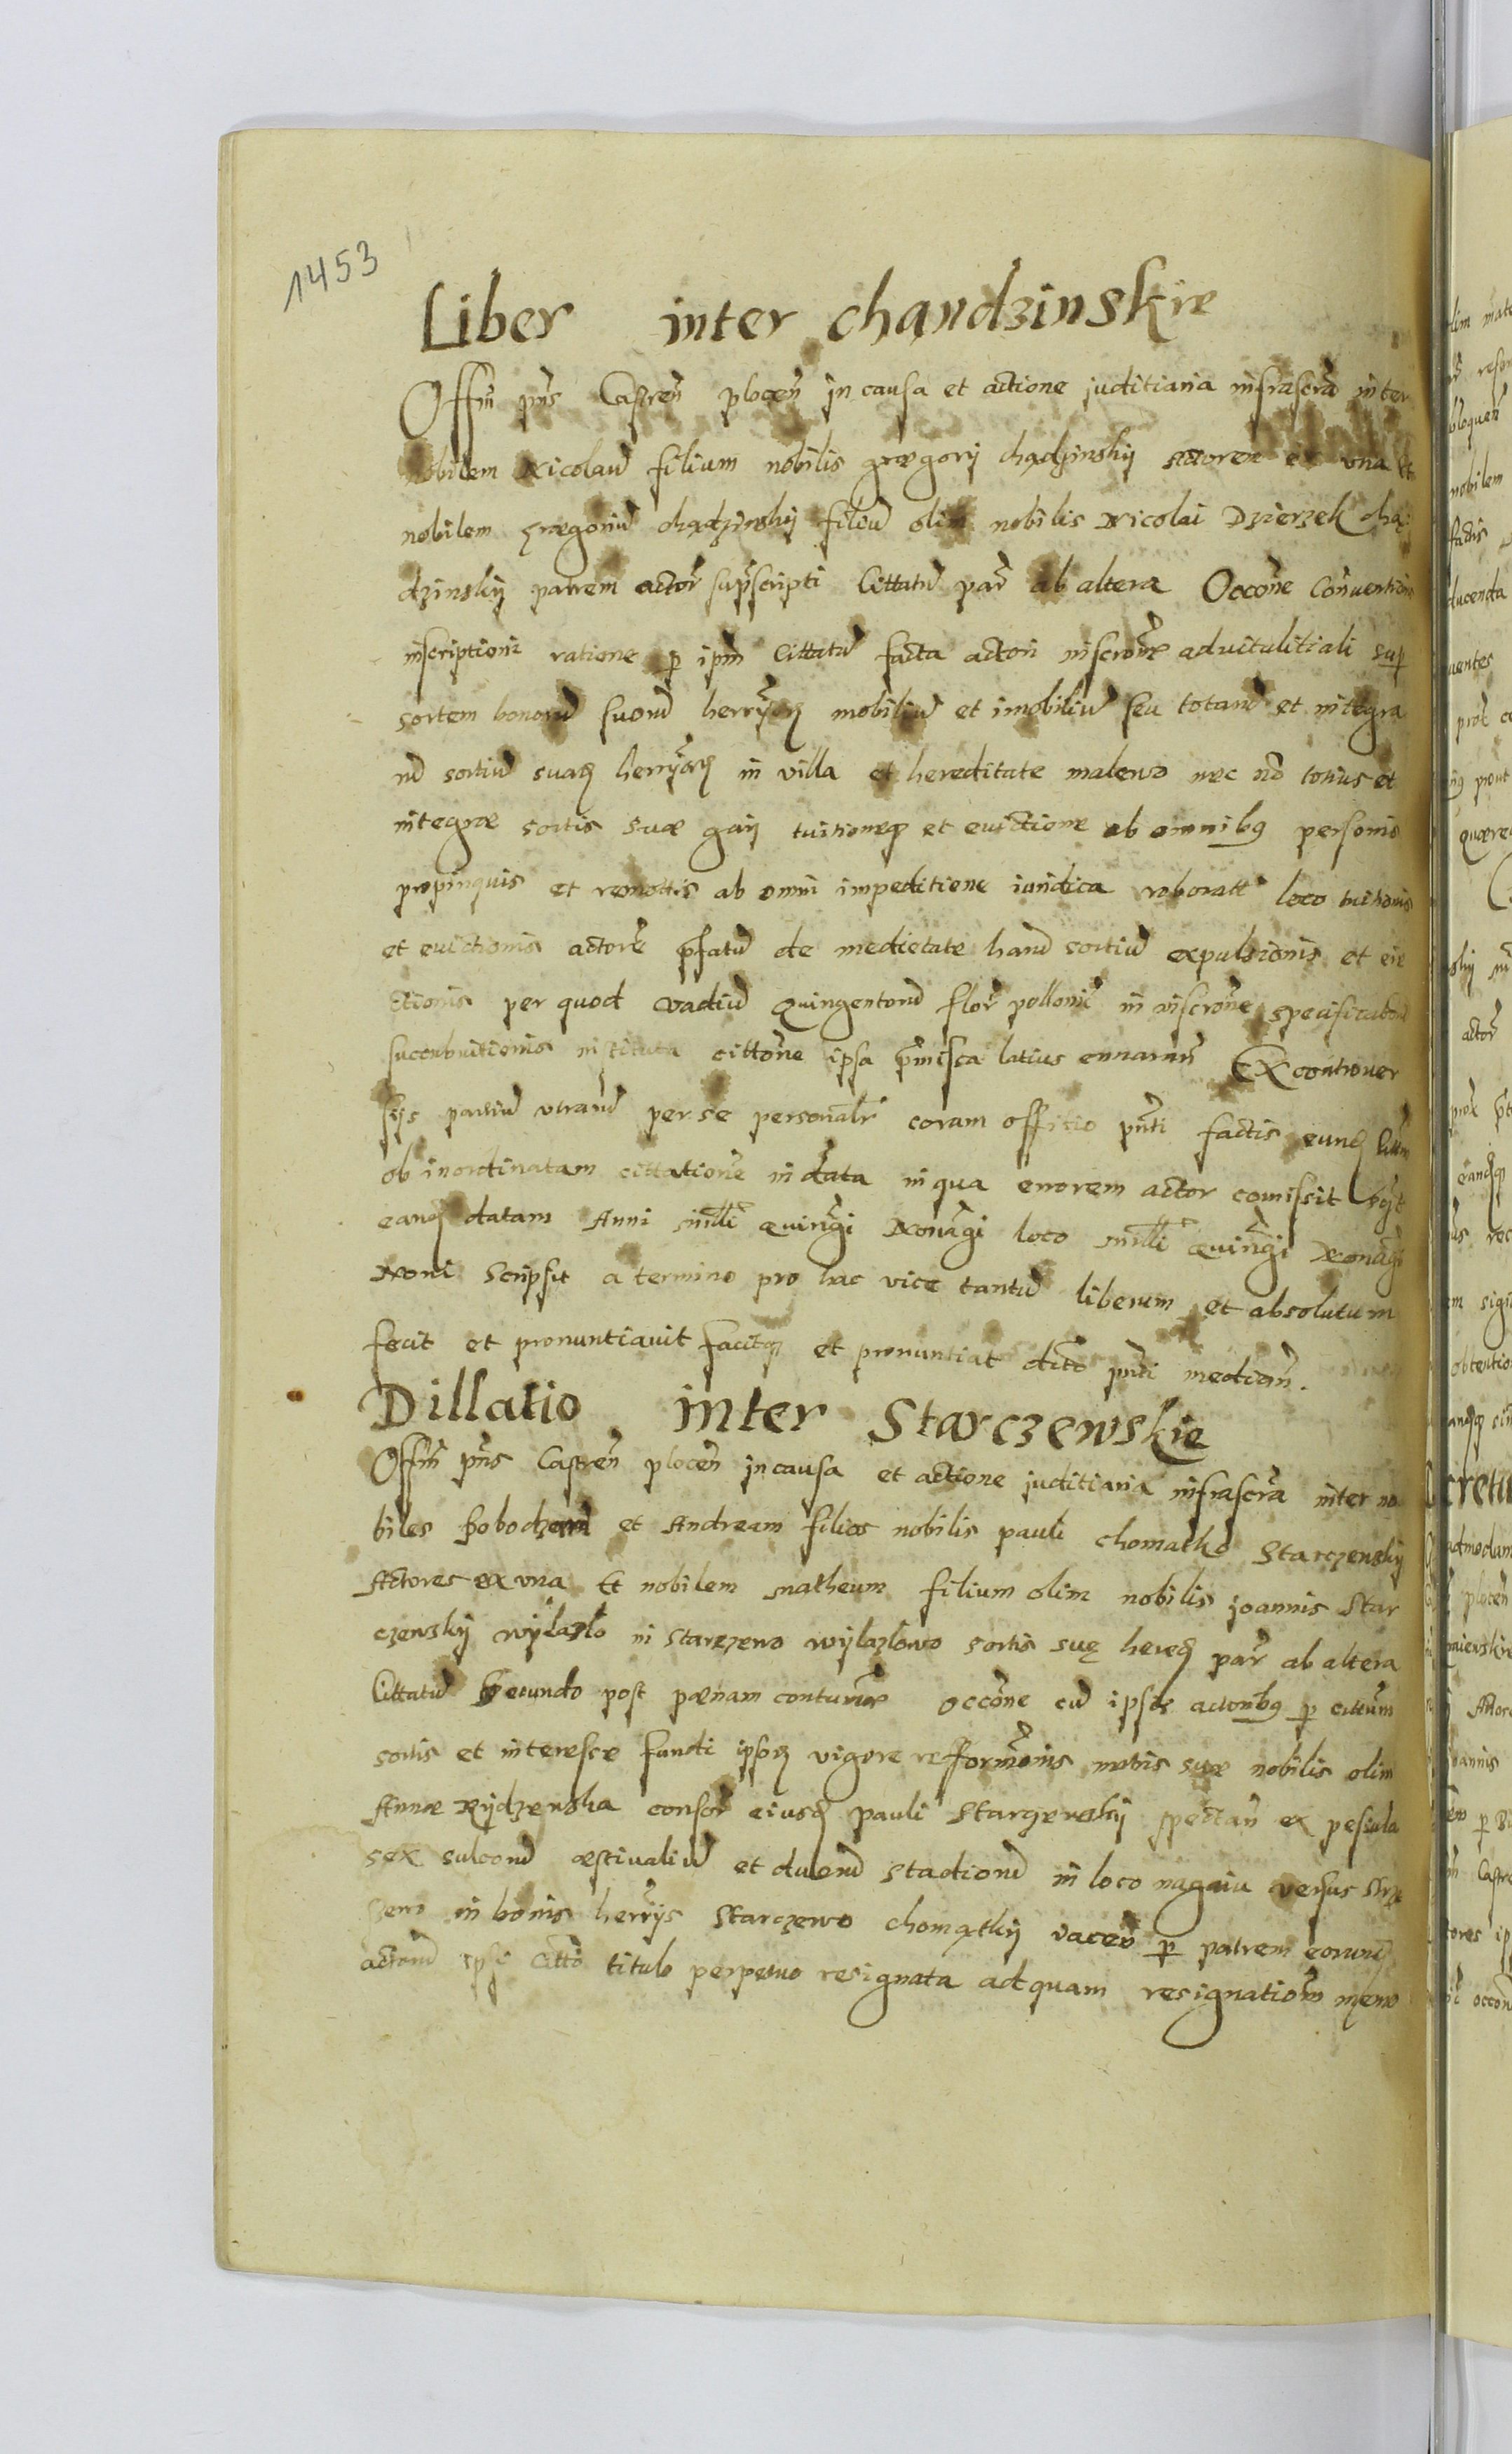 1453
Liber inter chandzinskie
Offm pns Castren plocen in causa et actione juditiaria infrascra inter
nobilem Nicolaum filium nobilis gregorij chądzinskij actorem ex una et
nobilem gregorium chądzinskij filium olim nobilis Nicolai Dzierzek chą
dzinskij patrem actor suprascripti Cittatum par ab altera Occone Conventionis
inscriptionis ratione p ipm Cittatum facta actori inscrone advitalitiali sup
sortem bonorum suorum herrijorum mobilium et imobilium seu totarum et integra
rum sortium suarum herrijarum in villa et hereditate malewo nec no totius et
integrae sortis suae gaij tuitioneque et evictione ab omnibq personis
propinquis et remottis ab omni impeditione iuridica roboratt loco tuitionis
et evictionis actore pfatum de medietate harum sortium expulsionis et eie
ctionis per quod vadium quingentorum flor pollonic in inscrone specificatorum
succubuitionis instituta cittone ipsa pmissa latius ennarrans Ex controver
sijs partium utrarum per se personalr coram officio pnti factis eund Cittum
ob inordinatam cittatione in data in qua errorem actor comissit
eandq datam Anni milli quingi Nonagi loco milli quingi Nonagi
Noni Scripsit a termino pro hac vice tantum liberum et absolutum
fecit et pronuntiavit facitq et pronuntiat dcto pnti median.
Dillatio inter Starczewskie
Offm pns Castren plocen in causa et actione juditiaria infrascra inter no
biles et Andream filios nobilis pauli chomątko Starczewskij
Actores ex una Et nobilem matheum filium olim nobilis joannis Star
czewskij wijlazlo in Starczewo wijlazlowo sortis suę hered par ab altera
Cittatum Secundo post paenam contumac occone cum ipsis actoribq p cittum
sortis et interesse fundi ipsorum vigore refformonis matris suae nobilis olim
Annae Rijdzewska consor eiusd pauli Starczewskij spectan ex pesiula
sex sulcorum aestivalium et duorum stadiorum in loco nagaiu versus
in bonis herrijs Starczewo chomątkij vacen p patrem eorund
actorum ipsi citto titulo perpetuo resignata ad quam resignationem